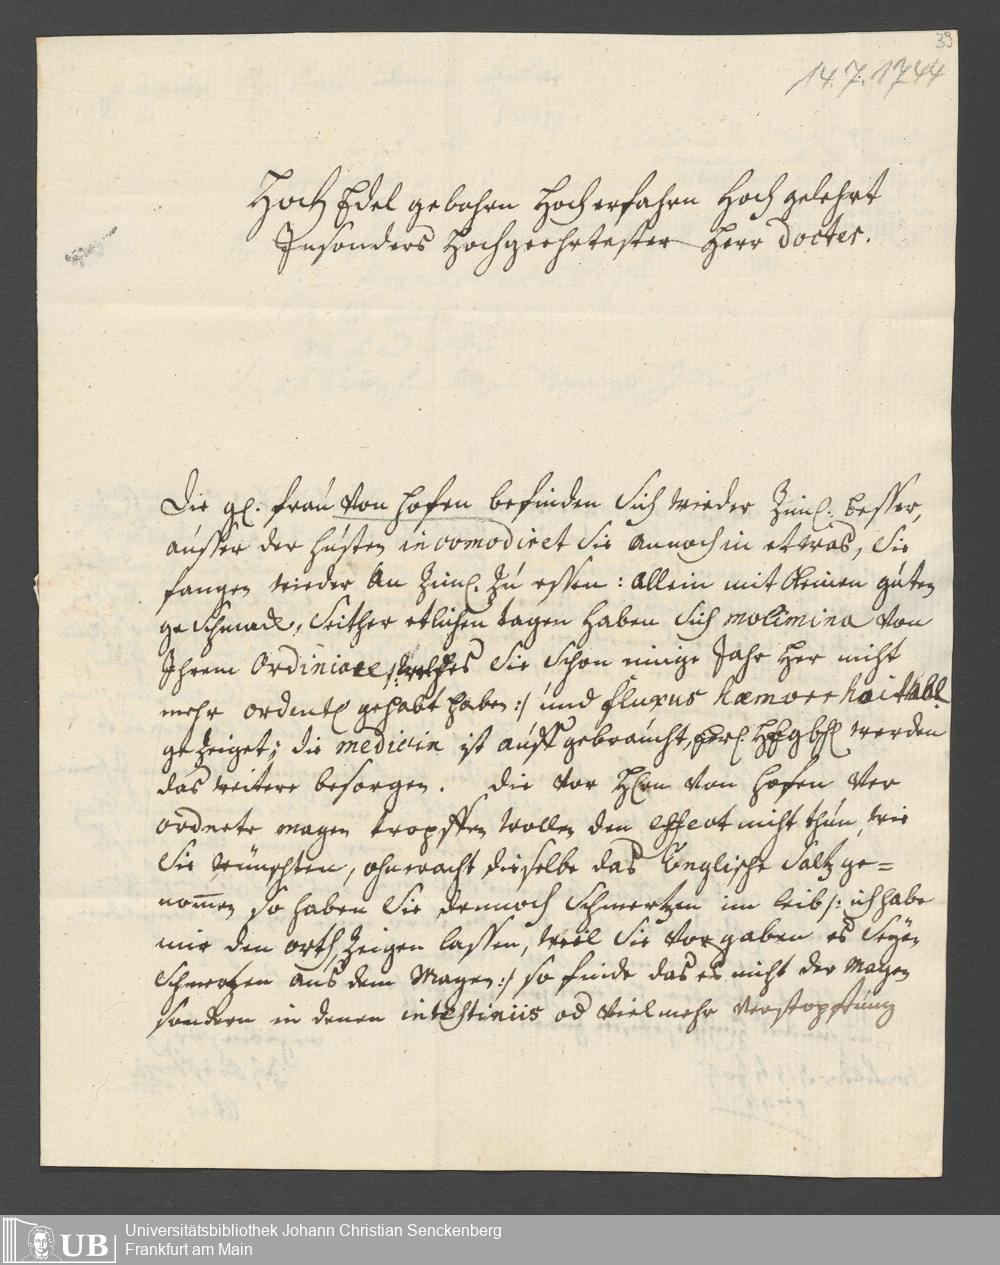 39
14.7.1744
Hoch Edel gebohrn Hocherfahrn Hoch gelehrt
Insonders Hochgeehrtester Herr Docter.
Die gl. frau Von Hofen befinden Sich wieder Ziml. besser,
ausser der husten incomodiret Sie annoch in etwas, Sie
fangen wieder an Ziml. Zu essen: allein mit keinen guten
geschmack, Seither etlichen tagen haben Sich molimina Von
Ihrem Ordiniaere /:welches Sie Schon einige Jahr her nicht
mehr ordentl gehabt haben:/ und fluxus haemorrhoidal.
gezeiget; die medicin ist auss gebraucht, werden
das weitere besorgen. Die Vor H. Von Hofen Ver
ordnete magen tropffen wollen den effect nicht thun, wie
Sie wünschten, ohneracht dieselbe das Englische Saltz ge=
nomen so haben Sie dennoch Schmertzen im leib /: ich habe
mir den orth Zeigen lassen, weil Sie Vorgaben es Seÿen
Schmertzen aus dem Magen:/ so finde das es nicht der Magen
sondern in denen intestiniis od Vielmehr Verstopffung
UB
Universitätsbibliothek Johann Christian Senckenberg
Frankfurt am Main